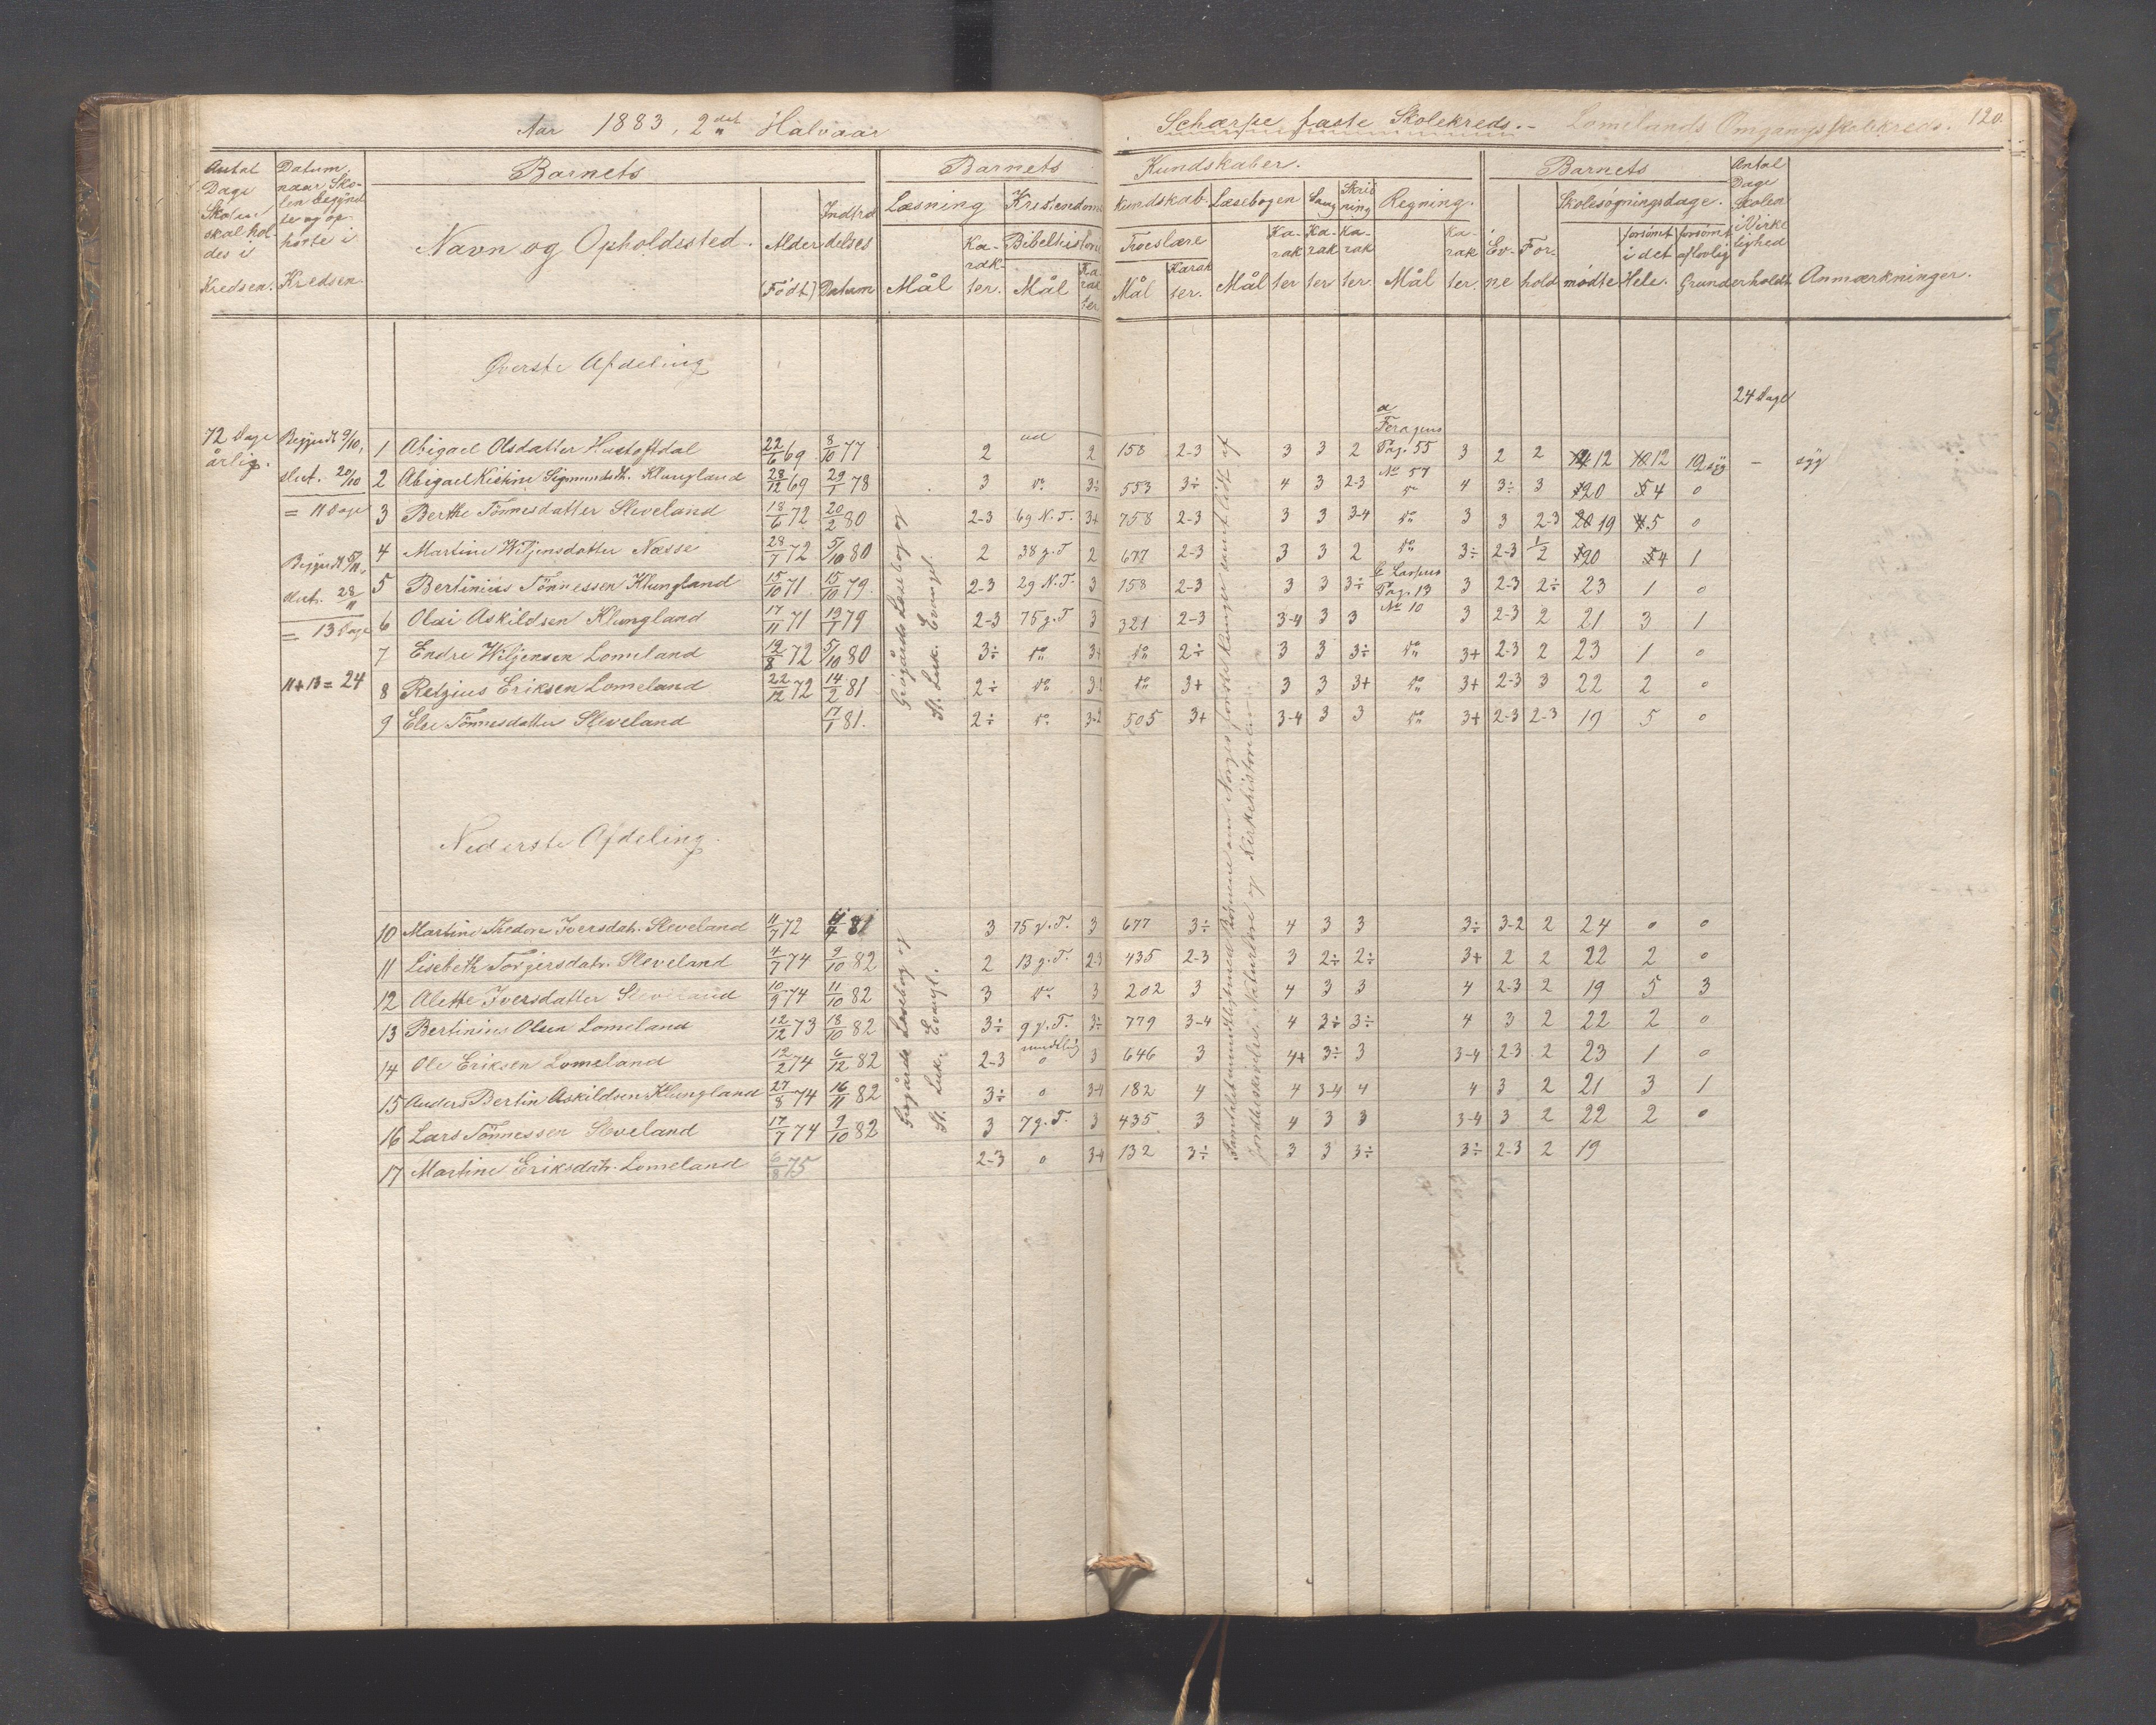 Aar 1883, 2det Halvaar
Schærpe faste Skolekreds.- Lomelands Omgangsskolekreds. 120.
Antal Dage Skolen skal holdes i Kredsen.
Datum, naar Skolen begyndte og ophørte i Kredsen.
Barnets
Navn og Opholdssted.
Alder (Født)
Indtrædelses Datum
Barnets Kundskaber.
Læsning
Mål
Karakter.
Kristendomskundskab.
Bibelhistorie
Mål
Karakter
Troeslære
Mål
Karakter.
Læsebogen
Mål
Karakter
Sang
Karakter
Skrivning
Karakter.
Regning.
Mål
Karakter.
Barnets
Evne
Forhold
Skolesøgningsdage.
mødte
forsømt i det Hele.
forsømt af lovlig Grund
Antal Dage Skolen i Virkelighed erholdt
Anmærkninger.
Øverste Afdeling
24 Dage
72 Dage årlig.
Begyndt 9/10,
slut. 20/10
= 11 Dage
Begyndt 5/11,
slut. 28/11
= 13 Dage
11+13=24
1 Abigael Olsdatter Hustoftdal 22/6 69 8/10 77 2 ud 2 158 2-3 3 3 2 Pag. 55 3 2 2 12 12 12 syg - syg
2 Abigael Kistine Sigmundsdt. Klungland 28/12 69 29/1 78 3 do 3÷ 553 3÷ 4 3 2-3 No 57 do 4 3÷ 3 20 4 0
3 Berthe Tönnesdatter Sleveland 18/6 72 20/2 80 2-3 69 N.T. 3+ 758 2-3 3 3 3-4 do 3 3 2-3 19 5 0
4 Martine Wiljensdatter Næsse 28/7 72 5/10 80 2 38 g.T 2 677 2-3 3 3 2 do 3÷ 2-3 1/2 20 4 1
5 Bertinius Tönnessen Klungland 15/10 71 15/10 79. 2-3 29 N.T. 3 158 2-3 3 3 3÷ Pag. 13 3 2-3 2÷ 23 1 0
6 Olai Askildsen Klungland 17/11 71 19/1 79 2-3 75 g.T 3 321 2-3 3-4 3 3 No 10 3 2-3 2 21 3 1
7 Endre Wiljensen Lomeland 12/8 72 5/10 80 3÷ do 3+ do 2÷ 3 3 3÷ do 3+ 2-3 2 23 1 0
8 Retgius Eriksen Lomeland 22/12 72 14/2 81 2÷ do 3-2 do 3+ 3 3 3+ do 3+ 2-3 3 22 2 0
9 Else Tönnesdatter Sleveland 17/1 81. 2÷ do 3-2 505 3+ 3-4 3 3 do 3+ 2-3 2-3 19 5 0
Nederste Afdeling.
10 Martine Thedora Iversdatr. Sleveland 11/7 72 81 3 75 g.T. 3 677 3÷ 4 3 3 3÷ 3-2 2 24 0 0
11 Lisebeth Torgersdatr. Sleveland 4/7 74 9/10 82 2 13 g.T. 2-3 435 2-3 3 2÷ 2÷ 3+ 2 2 22 2 0
12 Alette Iversdatter Sleveland 10/9 74 11/10 82 3 do 3 202 3 4 3 3 4 2-3 2 19 5 3
13 Bertinius Olsen Lomeland 12/12 73 18/10 82 3÷ 9 g.T. 3÷ 779 3-4 4 3÷ 3÷ 4 3 2 22 2 0
14 Ole Eriksen Lomeland 12/2 74 6/12 82 2-3 mundtlig 0 3 646 3 4+ 3÷ 3 3-4 2-3 2 23 1 0
15 Anders Bertin Askildsen Klungland 27/8 74 16/11 82 3÷ 0 3-4 182 4 4 3-4 4 4 3 2 21 3 1
16 Lars Tönnessen Sleveland 17/7 74 9/10 82 3 7 g.T. 3 435 3 4 3 3 3-4 3 2 22 2 0
17 Martine Eriksdatr. Lomeland 6/8 75 2-3 0 3-4 132 3÷ 3 3 3÷ 3÷ 2-3 2 19
Læsebog og
St. Luk. Evangl.
Læsebog og
St. Luk. Evangl.
Børnene om Norges
Jordbeskrivelse, Naturlære og Kirkehistorien